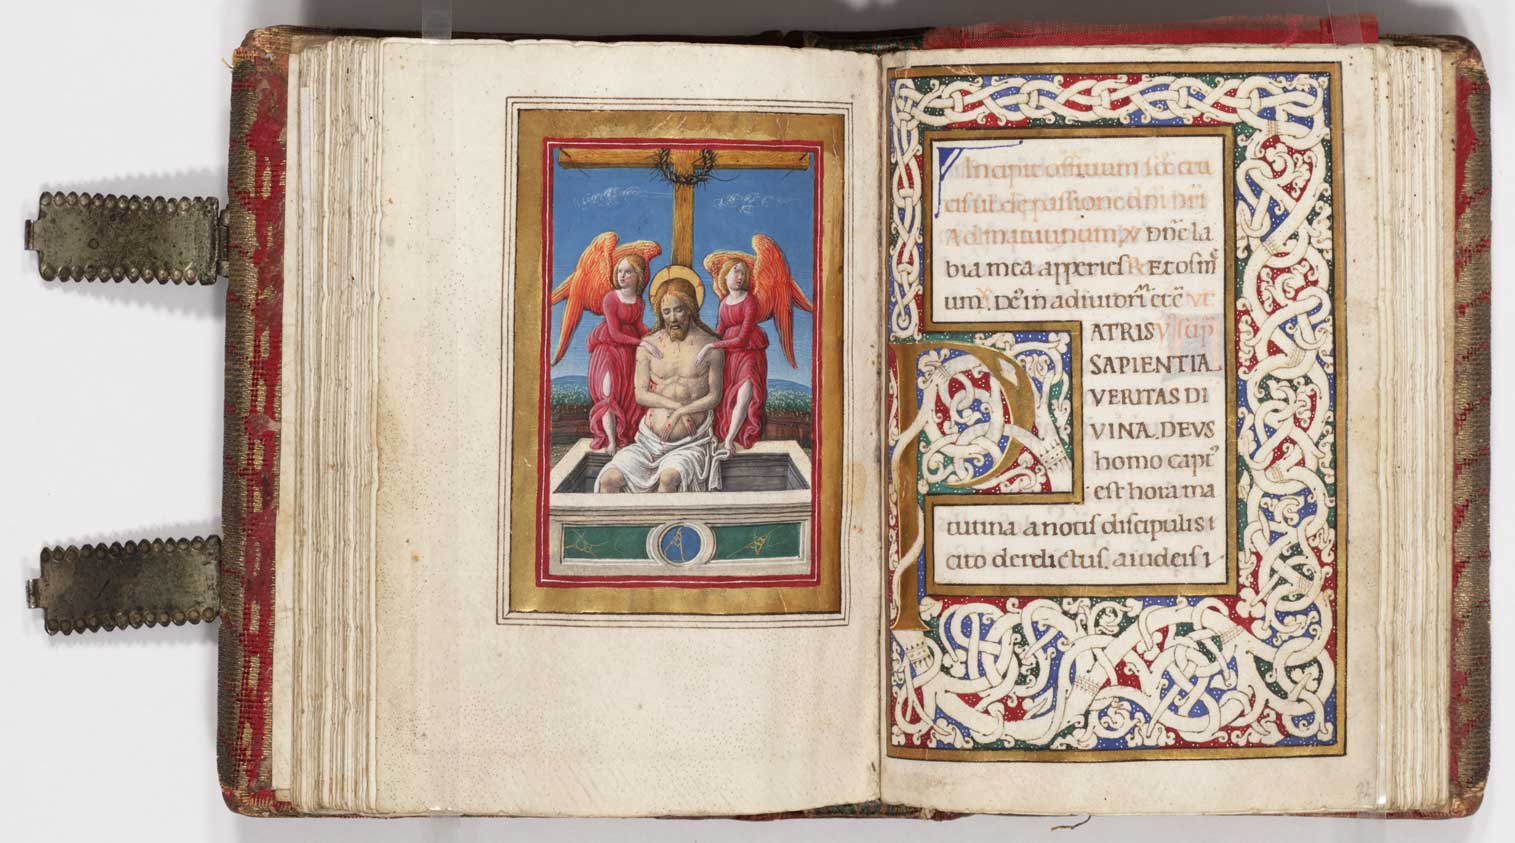 Incipit offitium scē cru
cis
passione dn̄i nr̄i
Ad matutinum. ℣ Dn̄e la
bia mea apperies ℟ Et os
um. ℣ in adiutori etc̄ ut
PATRIS ℣ sup̄
SAPIENTIA
VERITAS DI
VINA. DEVS
homo capt᾿
est hora ma
tutina a notis discipulis
cito derelictus. a iudeis